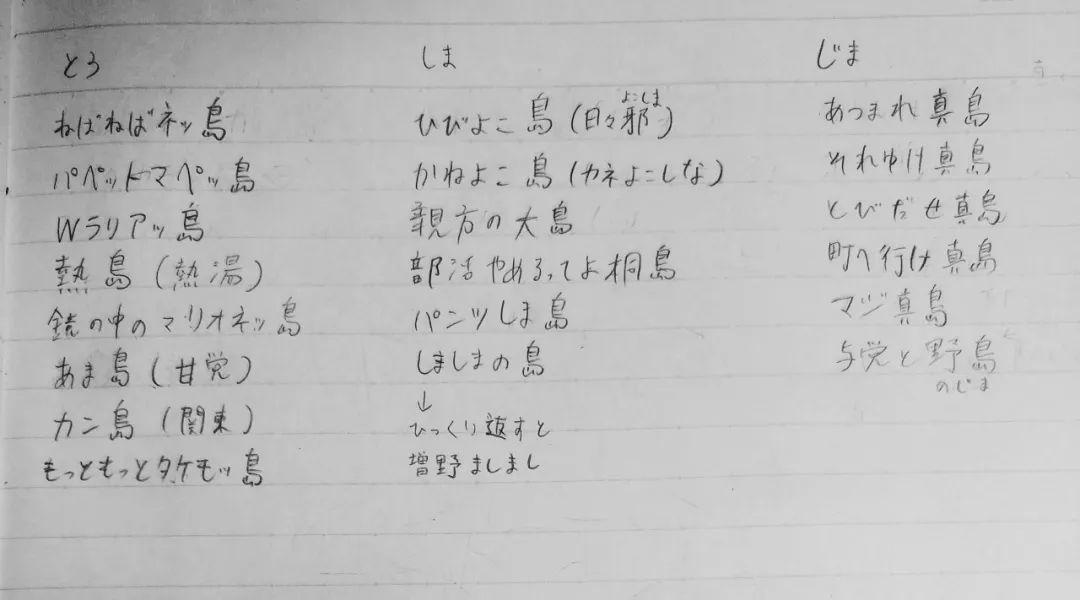 とう
ねばねばネッ島
パペットマペッ島
Wラリアッ島
熱島(熱湯)
鏡の中のマリオネッ島
あま島(甘党)
カン島(関東)
もっともっとタケモッ島
しま
ひびよこ島(日々邪)
よこしま
かねよこ島(カネよこしな)
親方の大島
部活やめるってよ桐島
パンツしま島
しましまの島
↓
ひっくり返すと
増野ましまし
じま
あつまれ真島
それゆけ真島
とびだせ真島
町へ行け真島
マジ真島
与党と野島
のじま